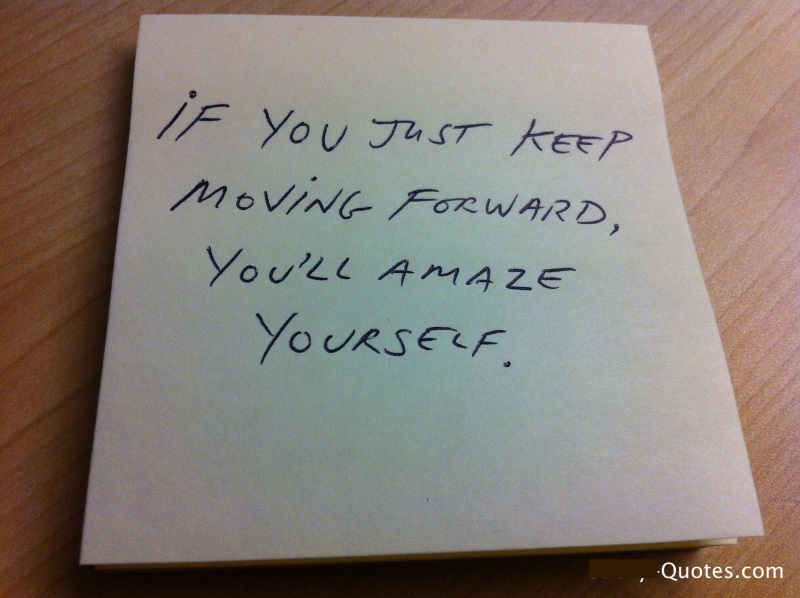 iF YOU JUST KEEP
MOViNG FORWARD,
YOU'LL AMAZE
YOURSELF.
-Quotes.com